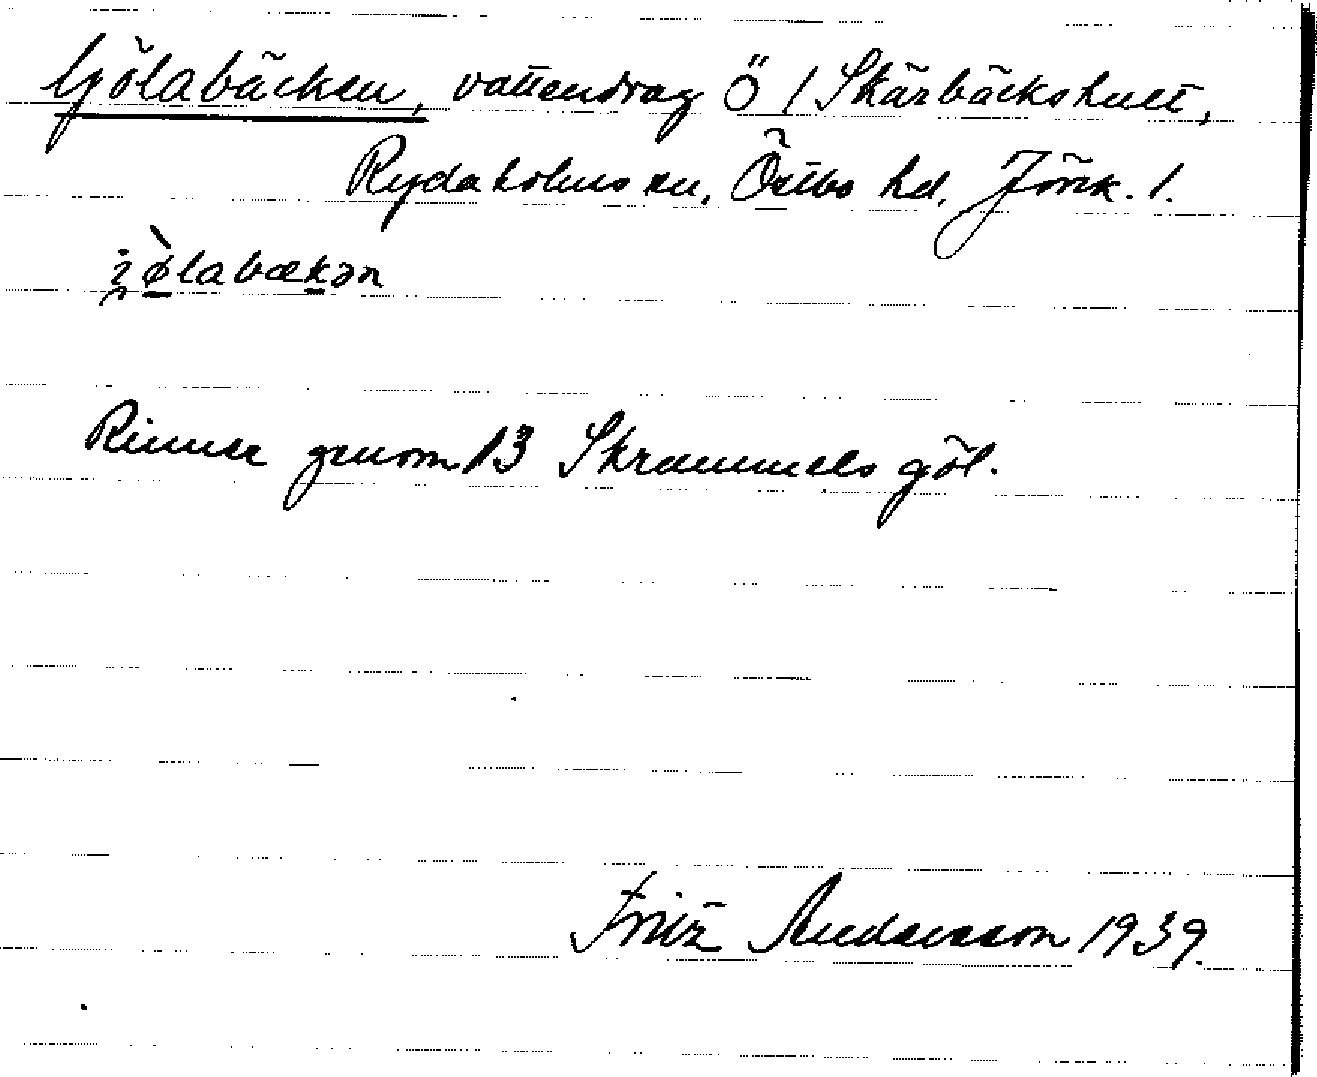 Gölabäcken, vattendrag Ö / Skärbäckshult,
Rydaholms sn, Östbo hd, Jönk. l.
jø̀labækən
Rinner genom 13 Skrammels göl.
Fritz Andersson 1939.